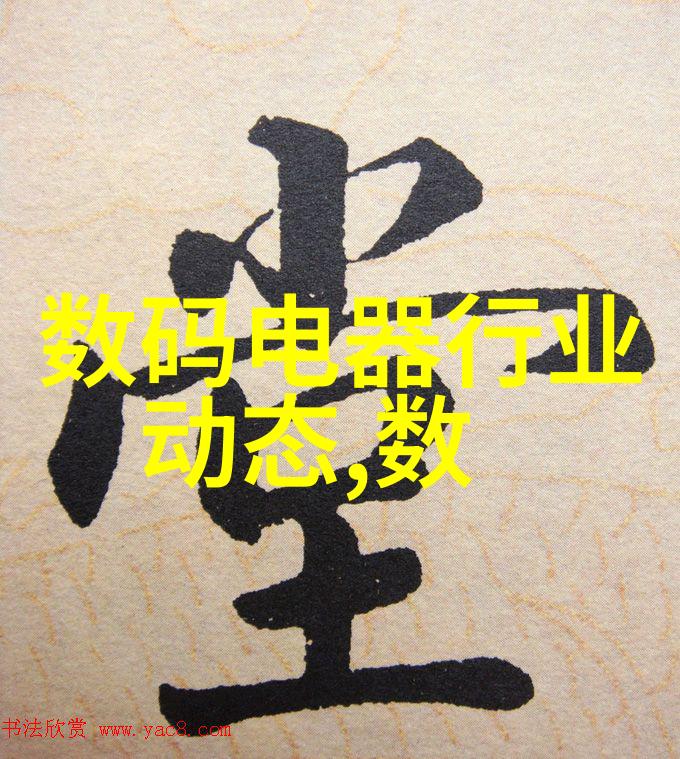 堂
数码电器行业
动态,数
书法欣赏 www.yac8.com